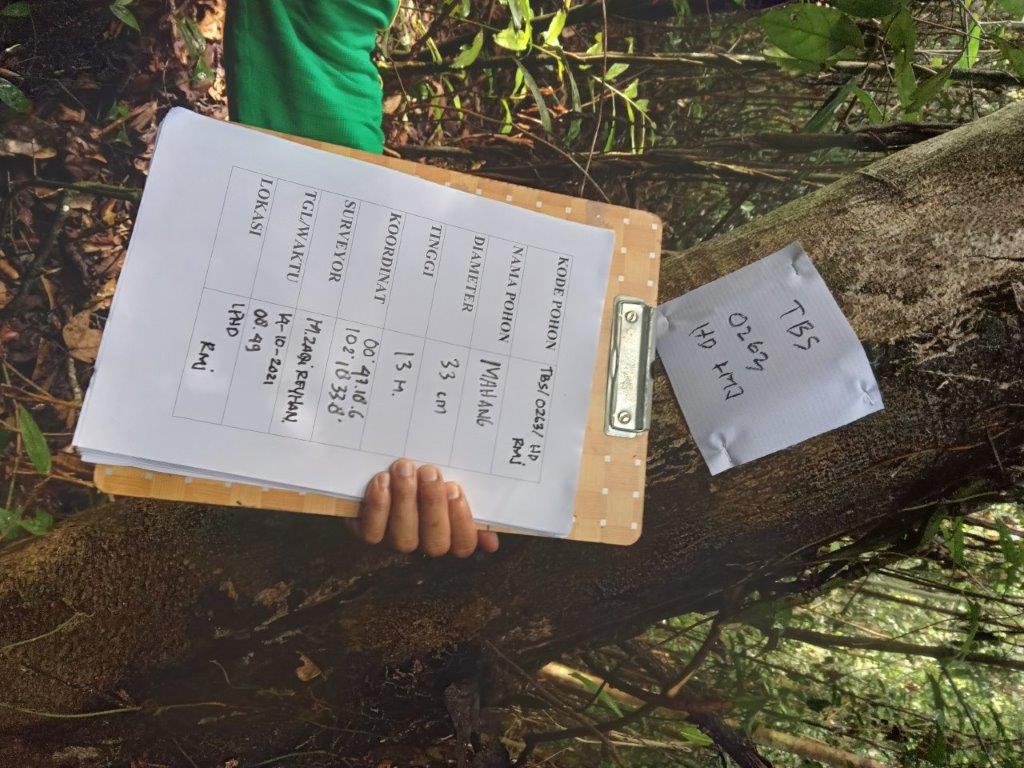 TBS
0263
HD RMJ
KODE POHON TBS/0263/ HD
RMJ
NAMA POHON MAHANG
DIAMETER 33 cm
TINGGI 13 M.
KOORDINAT 00° 47. 18. 6
102° 18 33.8.
SURVEYOR M. ZAQI REYHAN
TGL/WAKTU 14-10-2021
08.49
LOKASI LPHD
RMJ